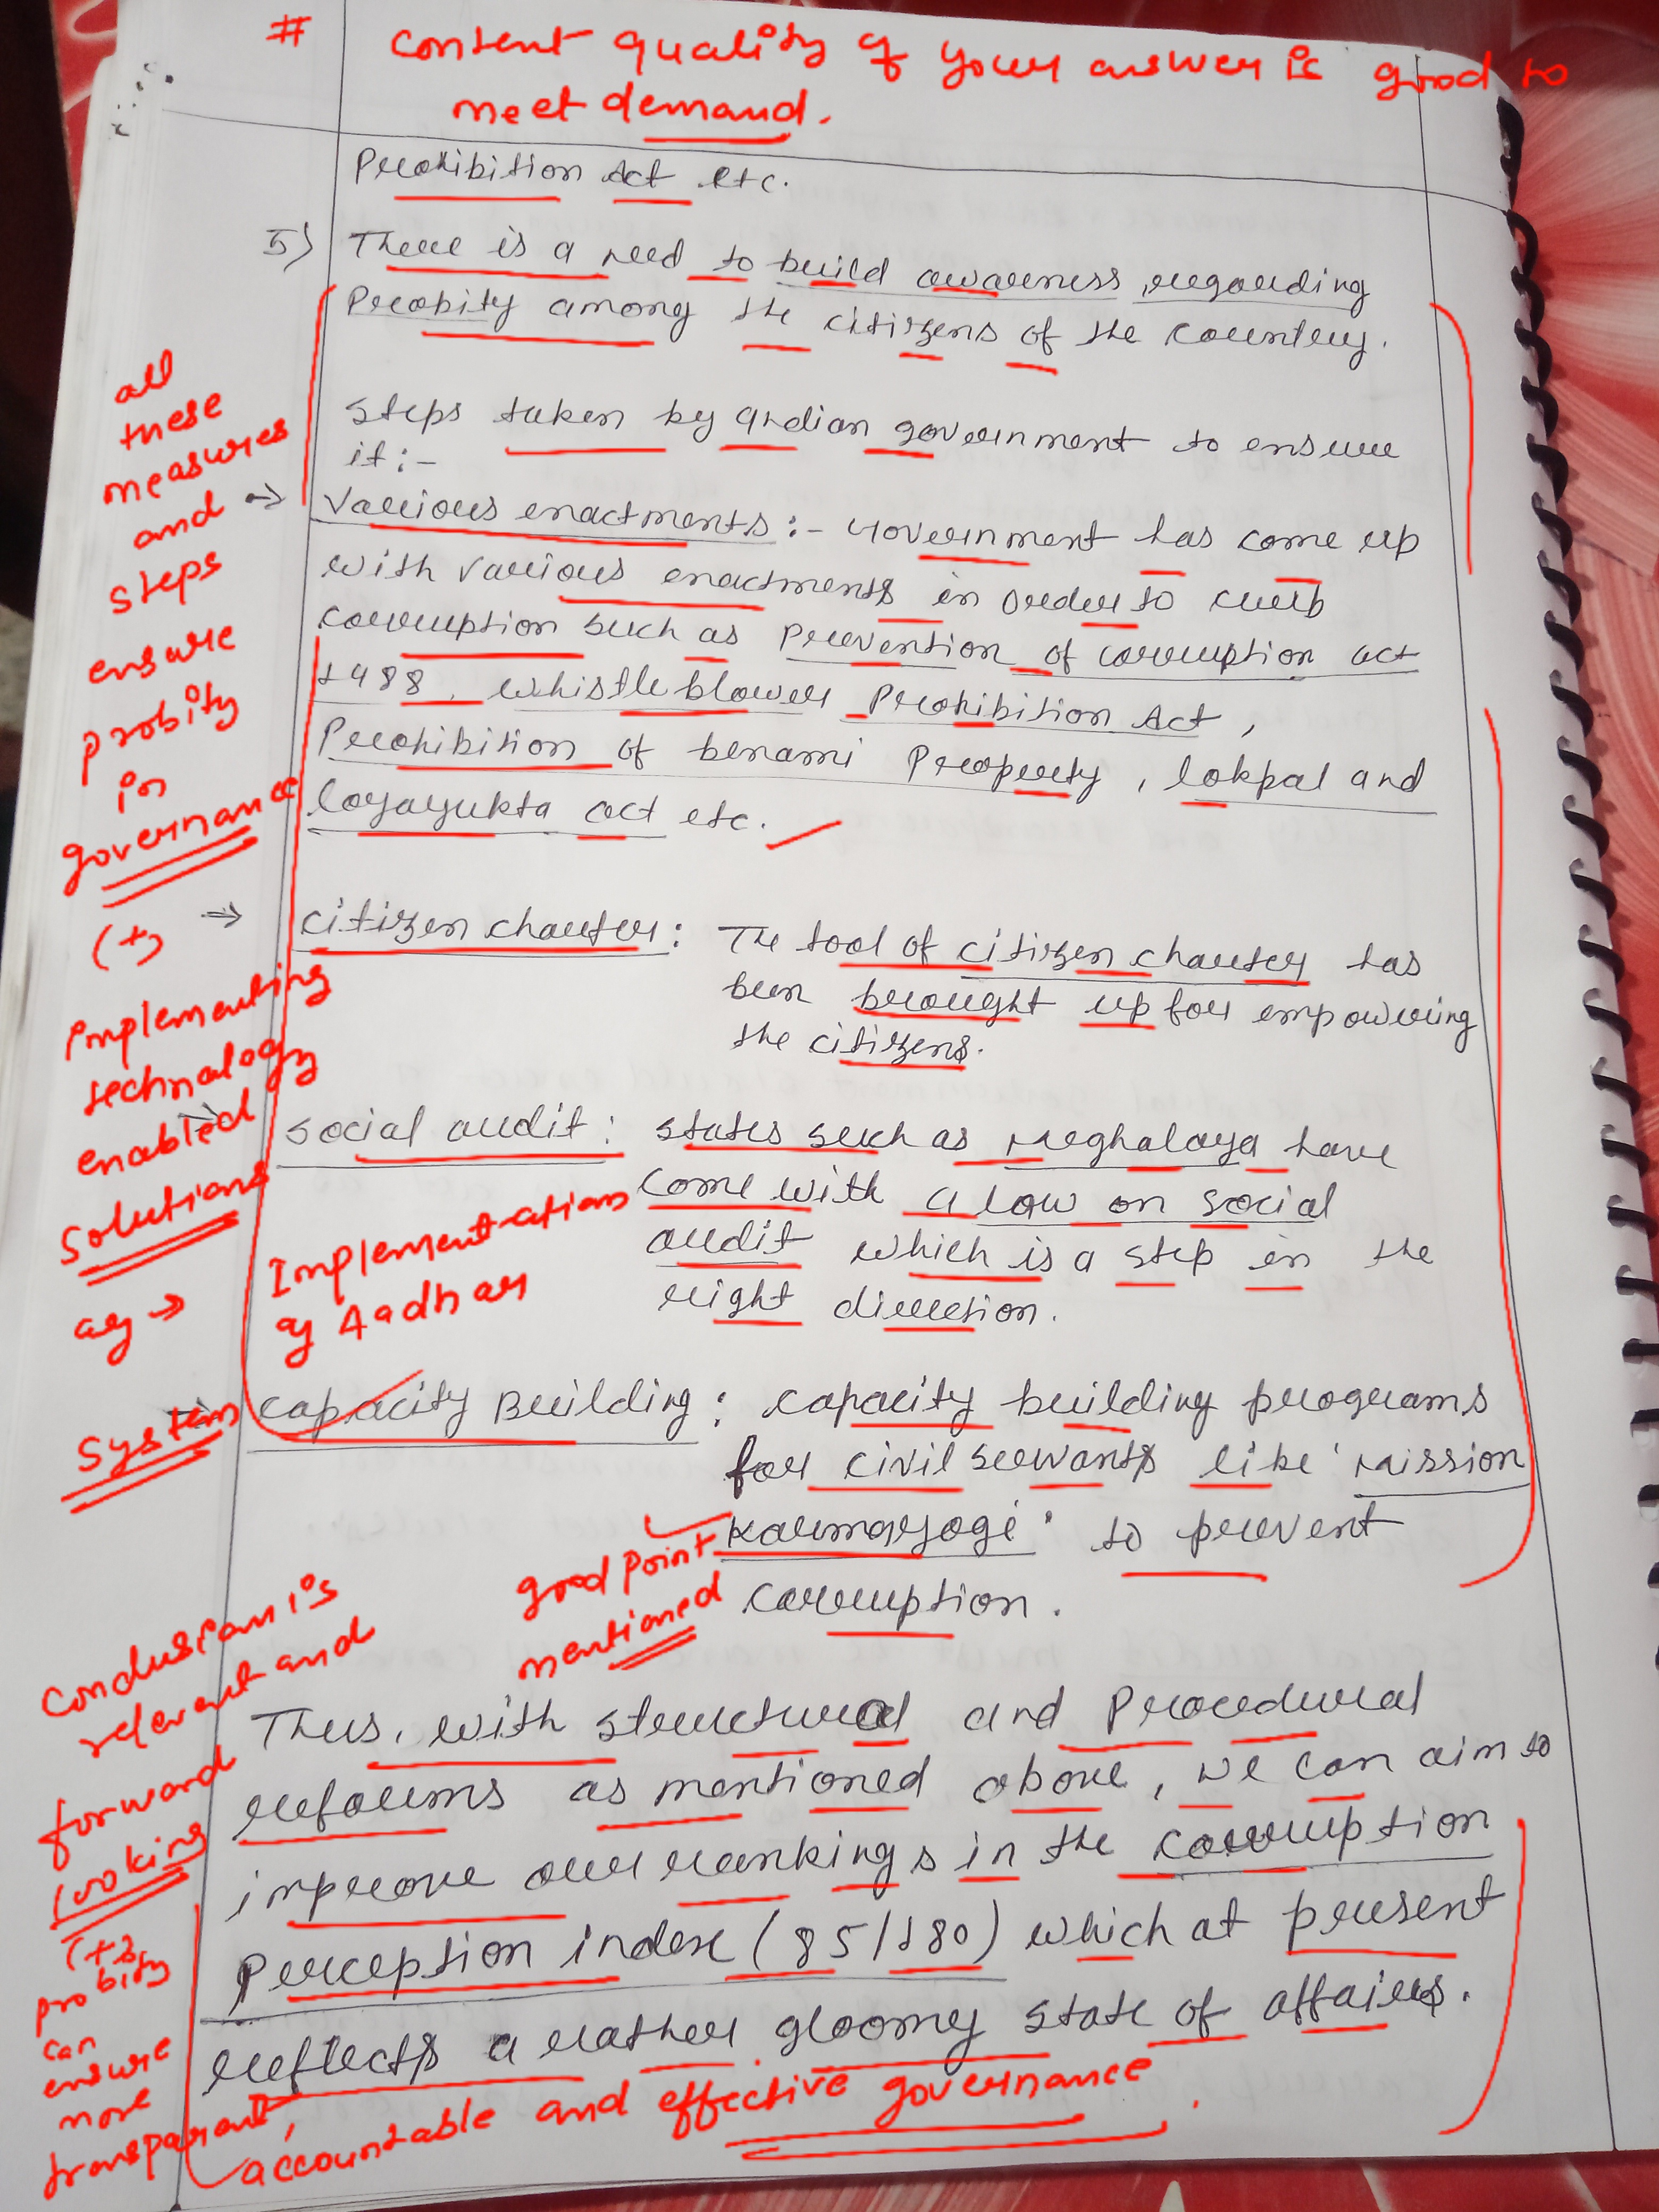 # content quality of your answer is good to
meet demand.
Prohibition Act etc.
5) There is a need to build awareness regarding
Probity among the citizens of the country.
Steps taken by Indian government to ensure
it :-
→ Various enactments :- Government has come up
with various enactments in order to curb
corruption such as Prevention of corruption act
1988, whistleblower Prohibition Act,
Prohibition of benami Property, lokpal and
loyayukta act etc.
→ citizen charter : The tool of citizen charter has
been brought up for empowering
the citizens.
→ social audit : states such as Meghalaya have
come with a law on social
audit which is a step in the
right direction.
→ capacity Building : capacity building programs
for civil servants like 'Mission
Karmayogi' to prevent
corruption.
Thus, with structural and Procedural
reforms as mentioned above, we can aim to
improve our rankings in the corruption
Perception index (85/180) which at present
reflects a rather gloomy state of affairs.
all
these
measures
and
steps
ensure
probity
in
governance
(+)
implementing
technology
enabled
solutions
eg →
Implementations
of Aadhar
System
good point
mentioned
Conclusion is
relevant and
forward
looking
(+)
probity
can
ensure
more
transparent,
accountable and effective governance.